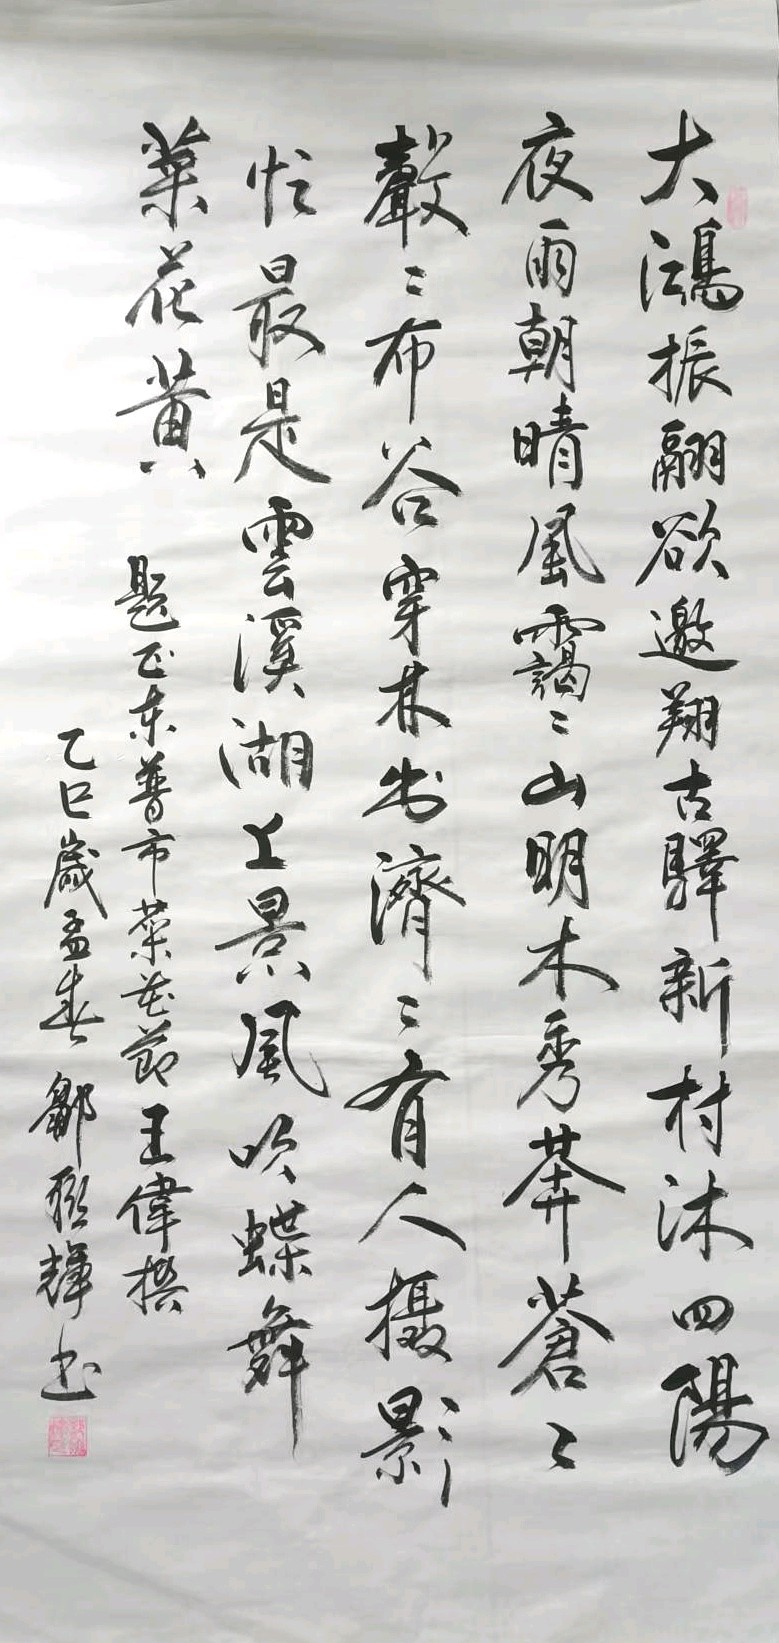 大鴻振翮欲邀翔古驛新村沐四陽
夜雨朝晴風靄〻山明木秀莽蒼〻
聲〻布谷穿林出濟〻有人摄影
忙最是雲溪湖上景風吹蝶舞
菜花黄
题正东普市菜花節王偉撰
乙巳歲孟春鄒联輝书